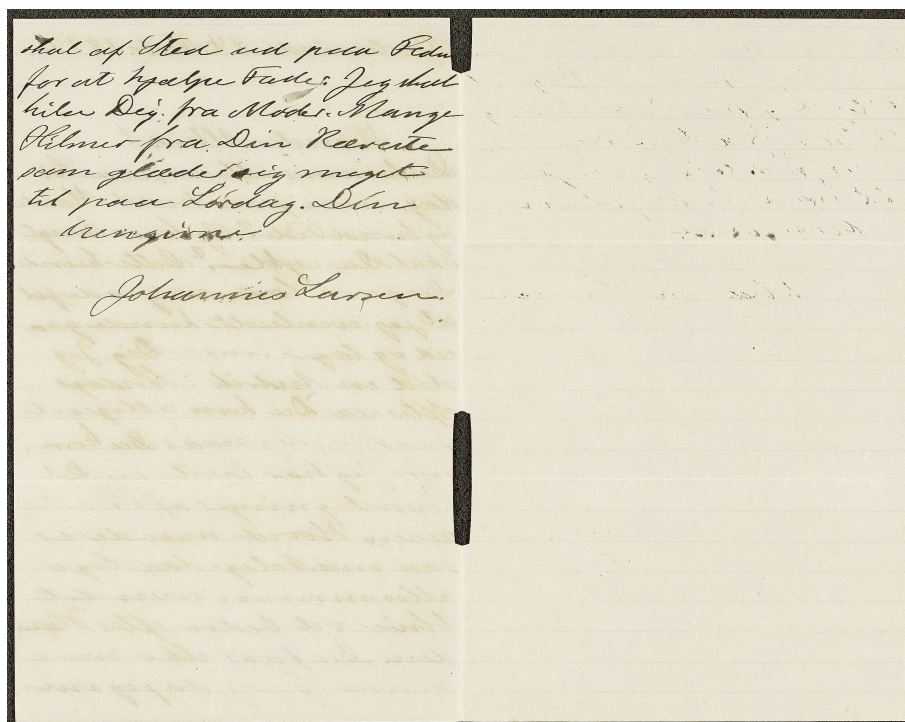 skal af Sted ud paa Feden
for at hjælpe Fader. Jeg skal
hilse Dig fra Moder. Mange
Hilsner fra Din Kæreste
som glæder sig meget
til paa Lørdag. Din
hengivne
Johannes Larsen.